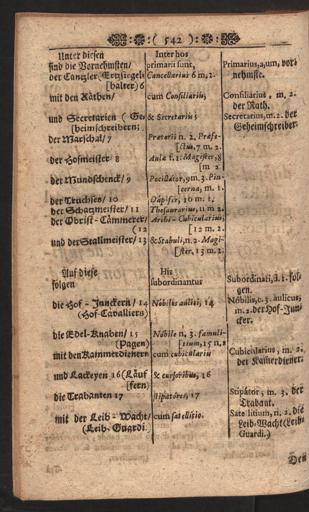 ( 542 )
Unter diesen
sind die Vornehmsten/
der Cantzler Ertzsiegel-
[halter) 6
mit den Räthen/
und Secretarien ( Ge-
[heimschreibern;
der Marschal/ 7
der Hofmeister/ 8
der Mundschenck/ 9
der Truchses/ 10
der Schatzmeister/ 11
der Obrist-Cämmerer/
(12
und der Stallmeister/ 13
Auf diese
folgen
die Hof-Junckern/ 14
(Hof-Cavalliers)
die Edel-Knaben/ 15
(Pagen)
mit den Kammerdienern
und Lackeyen 16 (Läuf
(fern)
die Trabanten 17
mit der Leib-Wacht/
(Leib-Guardi.)
Inter hos
primarii sunt,
Cancellarius 6 m. 2.
cum Consiliariis,
& Secretariis;
Prætorii n. 2. Præfe-
[ctus, 7 m. 2.
Aulæ f. 1. Magister, 8
[m 2.
Pocillator, 9 m. 3. Pin-
[cerna, m. 1.
Dapifer, 10 m. 1.
Thesaurarius, 11 m. 2.
Archi-Cubicularius,
[12 m. 2.
& Stabuli, n. 2. Magi-
[ster, 13 m. 2.
His
subordinantur
Nobiles aulici, 14
Nobile n. 3. famuli-
[tium, 15 n. 2
cum cubiculariis
& cursoribus, 16
stipatores, 17
cum satellitio.
Primarius, a, um, vor-
nehmste.
Consiliarius, m. 2.
der Rath.
Secretarius, m. 2. der
Geheimschreiber.
Subordinati, fol-
gen.
Nobilis, c. 3. aulicus,
m. 2. der Hof-Jun-
cker.
Cubicularius, m. 2.
der Kamerdiener.
Stipator, m. 3. der
Trabant.
Satellitium, n. 2. die
Leib-Wacht (Leib-
Guardi.)
Den